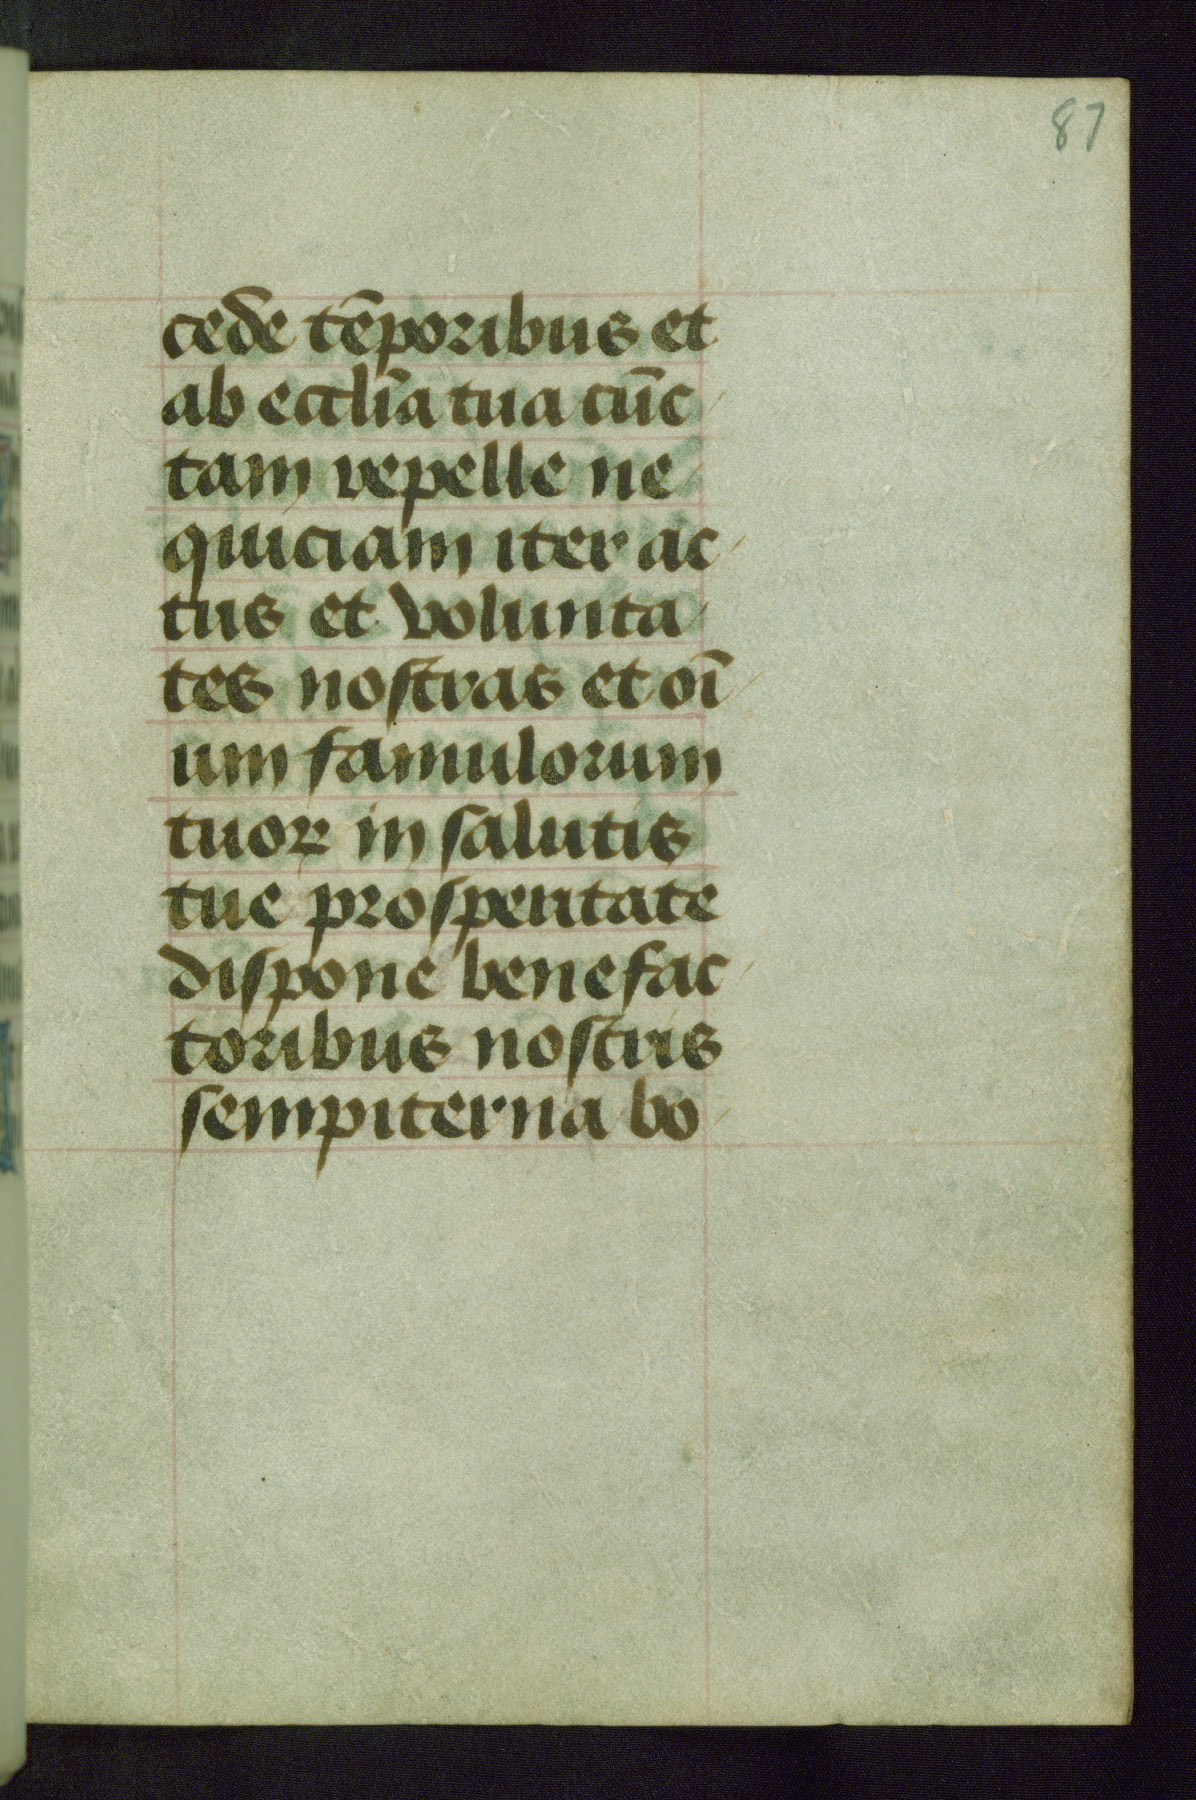 87
cēde tēporibus et
ab eccl̄ia tua cūc
tam repelle ne
quiciam iter ac
tus et volunta
tes nostras et oī
um famulorum
tuoꝝ in salutis
tue prosperitate
dispone benefac
toribus nostris
sempiterna bo